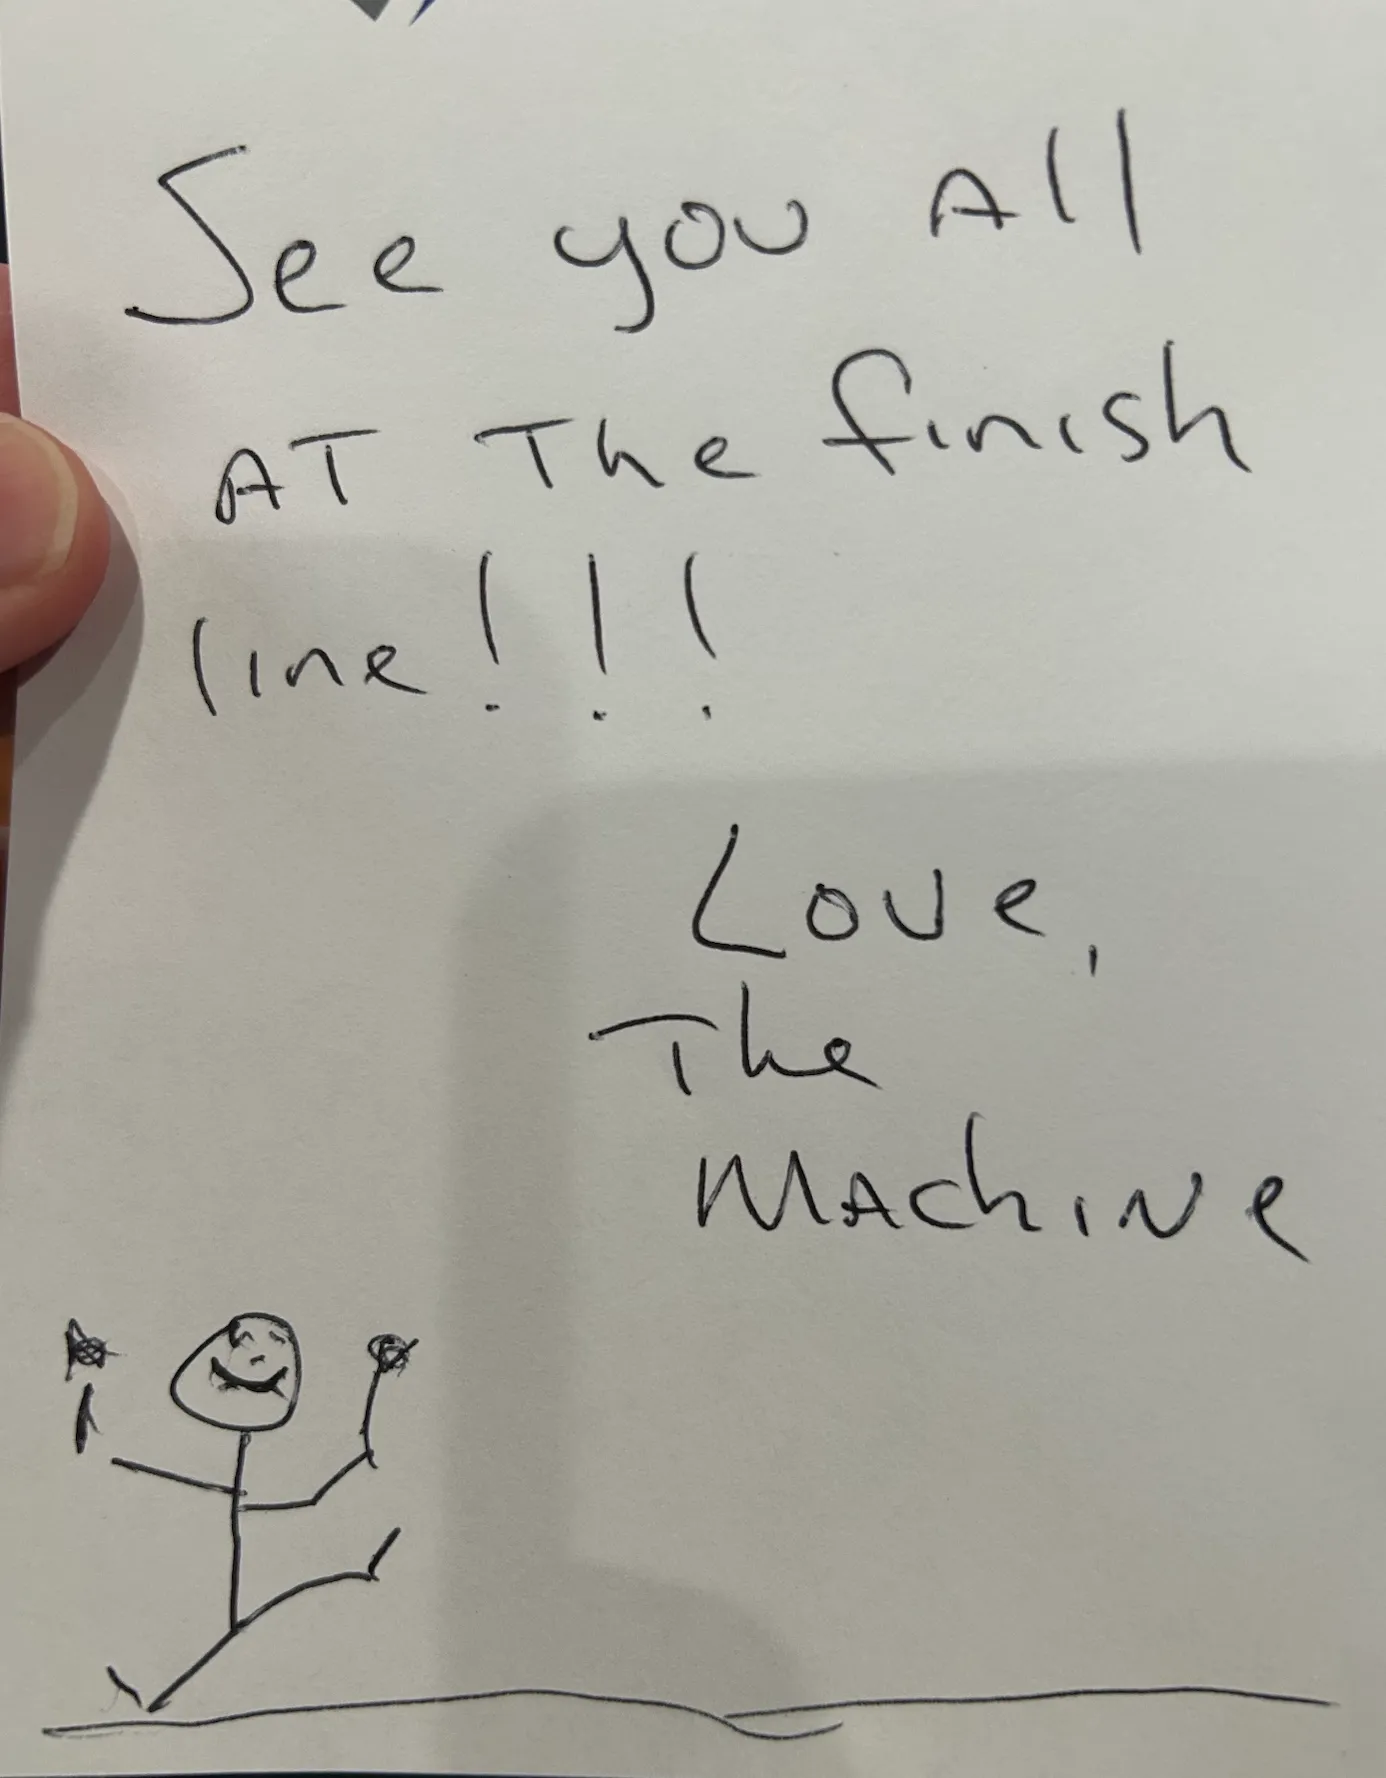 See you All
AT The finish
line!!!
Love,
The
MAchiNe